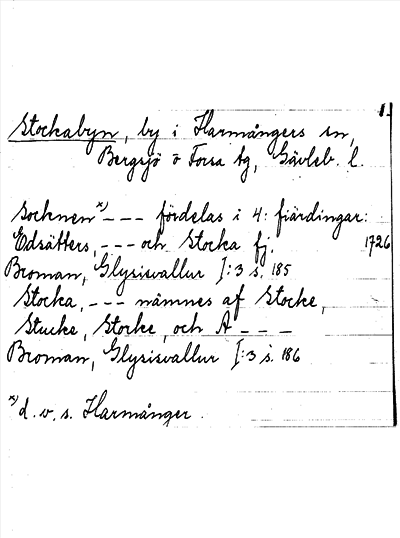 1.
Stockabyn, by i Harmångers sn,
Bergsjö o Forsa tg, Gävleb. l.
Socknen x) - - - fördelas i 4: fiärdingar:
Edsätters, - - - och Stocka fj. 1726
Broman, Glysisvallur I:3 s. 185
Stocka, - - - nämnes af Stocke,
Stucke, Storke, och A - - -
Broman, Glysisvallur I:3 s. 186
x) d.v.s. Harmånger.